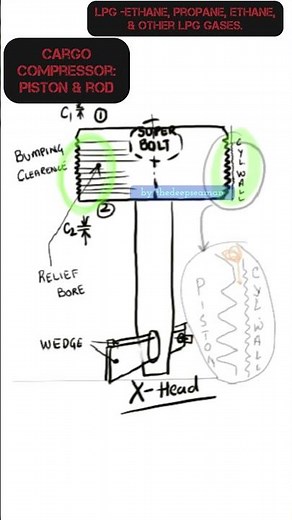 LPG -ETHANE, PROPANE, ETHANE,
& OTHER LPG GASES.
CARGO
COMPRESSOR:
PISTON & ROD
C1 ①
SUPER
BOLT
BUMPING
CLEARENCE
CYL WALL
by thedeepseaman
②
C2
RELIEF
BORE
PISTON
CYL WALL
WEDGE
X-Head